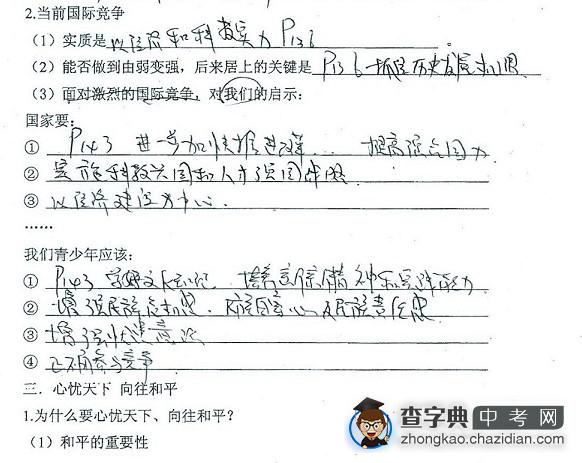 2.当前国际竞争
（1）实质是以经济和科技实力 P136。
（2）能否做到由弱变强，后来居上的关键是 P136 抓住历史发展机遇
（3）面对激烈的国际竞争，对我们的启示：
国家要：
① P143 进一步加快推进改革… 提高综合国力
② 实施科教兴国和人才强国战略
③ 以经济建设为中心.
……
我们青少年应该：
① P143 学好文化知识 培养创新精神和实践能力
② 增强民族危机感、 责任感
③ 增强忧患意识
④ 正确参与竞争
三．心忧天下 向往和平
1.为什么要心忧天下、向往和平？
（1）和平的重要性
查字典中考网
zhongkao.chazidian.com